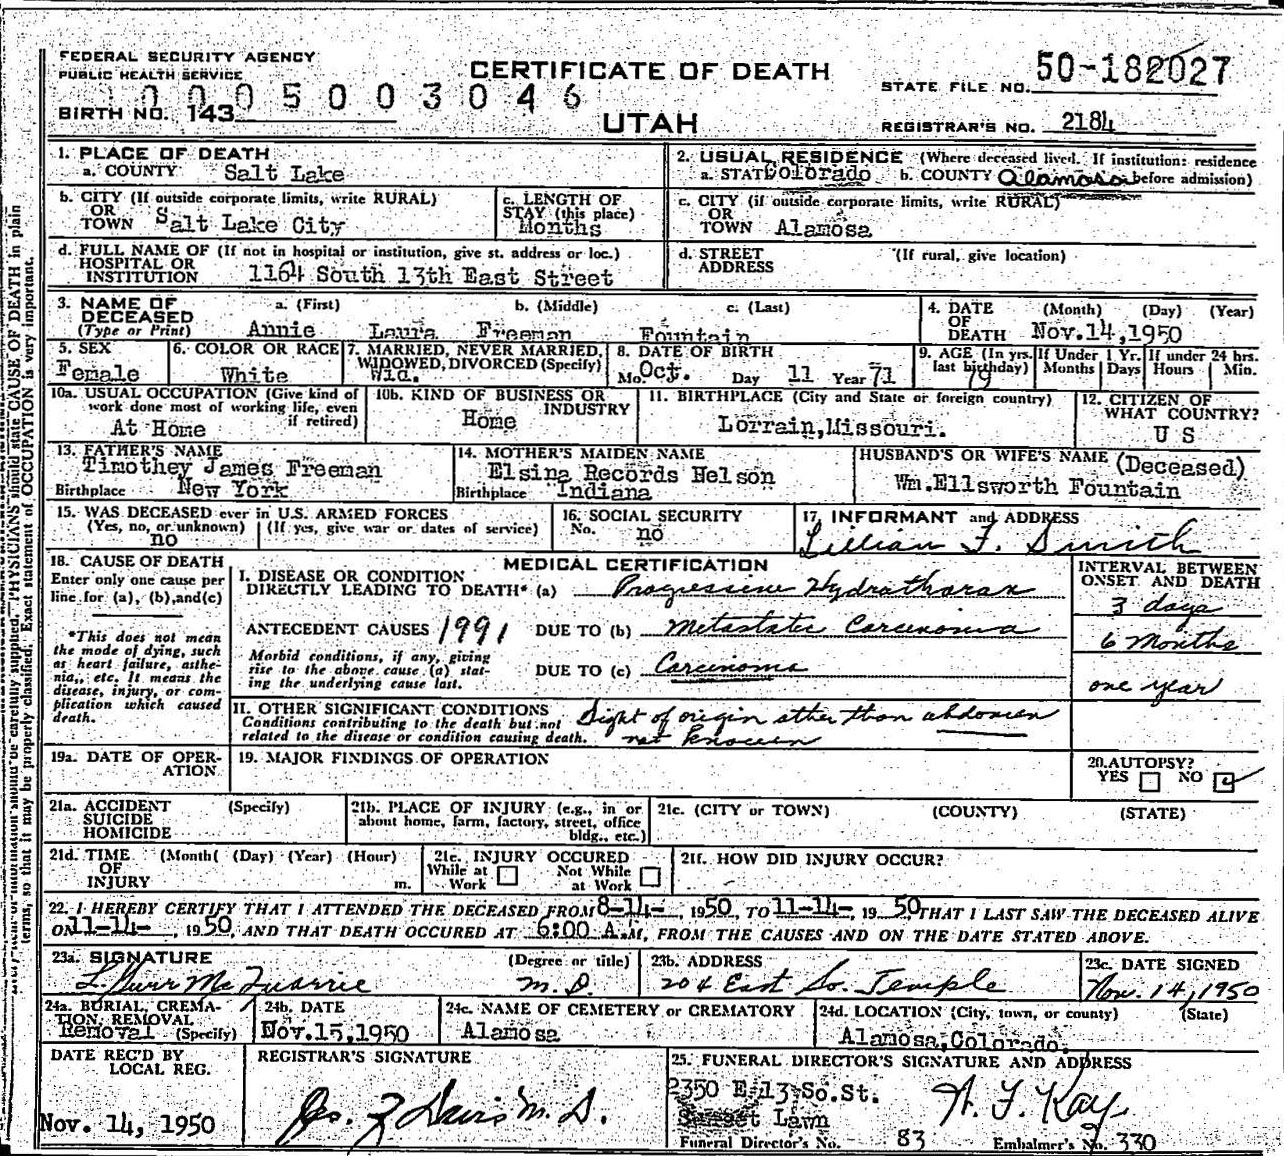 FEDERAL SECURITY AGENCY
PUBLIC HEALTH SERVICE
CERTIFICATE OF DEATH
UTAH
STATE FILE NO. 50-182027
1 0 0 0 5 0 0 3 0 4 6
BIRTH NO. 143
REGISTRAR'S NO. 2184
1. PLACE OF DEATH
a. COUNTY Salt Lake
2. USUAL RESIDENCE (Where deceased lived. If institution: residence before admission)
a. STATE Colorado b. COUNTY Alamosa
b. CITY (If outside corporate limits, write RURAL)
OR TOWN Salt Lake City
c. LENGTH OF STAY (this place) Months
c. CITY (if outside corporate limits, write RURAL)
OR TOWN Alamosa
d. FULL NAME OF (If not in hospital or institution, give st. address or loc.)
HOSPITAL OR INSTITUTION 1164 South 13th East Street
d. STREET ADDRESS (If rural, give location)
3. NAME OF DECEASED (Type or Print)
a. (First) b. (Middle) c. (Last)
Annie Laura Freeman Fountain
4. DATE OF DEATH (Month) (Day) (Year)
Nov.14,1950
5. SEX
Female
6. COLOR OR RACE
White
7. MARRIED, NEVER MARRIED, WIDOWED, DIVORCED (Specify)
Wid.
8. DATE OF BIRTH
Mo. Oct. Day 11 Year 71
9. AGE (In yrs. last birthday) 79
If Under 1 Yr. Months Days
If under 24 hrs. Hours Min.
10a. USUAL OCCUPATION (Give kind of work done most of working life, even if retired)
At Home
10b. KIND OF BUSINESS OR INDUSTRY
Home
11. BIRTHPLACE (City and State or foreign country)
Lorrain,Missouri.
12. CITIZEN OF WHAT COUNTRY?
U S
13. FATHER'S NAME
Timothey James Freeman
Birthplace New York
14. MOTHER'S MAIDEN NAME
Elsina Records Nelson
Birthplace Indiana
HUSBAND'S OR WIFE'S NAME (Deceased)
Wm.Ellsworth Fountain
15. WAS DECEASED ever in U.S. ARMED FORCES
(Yes, no, or unknown) (If yes, give war or dates of service)
no
16. SOCIAL SECURITY No. no
17. INFORMANT and ADDRESS
Lillian F. Smith
18. CAUSE OF DEATH
Enter only one cause per line for (a), (b), and (c)
*This does not mean the mode of dying, such as heart failure, asthenia,, etc. It means the disease, injury, or complication which caused death.
MEDICAL CERTIFICATION
INTERVAL BETWEEN ONSET AND DEATH
I. DISEASE OR CONDITION DIRECTLY LEADING TO DEATH* (a) Progressive Hydrathorax
3 days
ANTECEDENT CAUSES 1991 DUE TO (b) Metastatic Carcinoma
6 Months
Morbid conditions, if any, giving rise to the above cause (a) stating the underlying cause last.
DUE TO (c) Carcinoma
one year
II. OTHER SIGNIFICANT CONDITIONS
Conditions contributing to the death but not related to the disease or condition causing death.
Sight of origin other than abdomen
not known
19a. DATE OF OPERATION
19. MAJOR FINDINGS OF OPERATION
20. AUTOPSY?
YES NO
21a. ACCIDENT SUICIDE HOMICIDE (Specify)
21b. PLACE OF INJURY (e.g., in or about home, farm, factory, street, office bldg., etc.)
21c. (CITY or TOWN) (COUNTY) (STATE)
21d. TIME OF INJURY (Month( (Day) (Year) (Hour) m.
21e. INJURY OCCURED
While at Work Not While at Work
21f. HOW DID INJURY OCCUR?
22. I HEREBY CERTIFY THAT I ATTENDED THE DECEASED FROM 8-14-, 1950, TO 11-14-, 1950 THAT I LAST SAW THE DECEASED ALIVE
ON 11-14-, 1950, AND THAT DEATH OCCURED AT 6:00 A.M, FROM THE CAUSES AND ON THE DATE STATED ABOVE.
23a. SIGNATURE (Degree or title)
McQuarrie M.D.
23b. ADDRESS
204 East So. Temple
23c. DATE SIGNED
Nov. 14, 1950
24a. BURIAL, CREMATION, REMOVAL (Specify)
Removal
24b. DATE
Nov.15,1950
24c. NAME OF CEMETERY or CREMATORY
Alamosa
24d. LOCATION (City, town, or county) (State)
Alamosa,Colorado.
DATE REC'D BY LOCAL REG.
Nov. 14, 1950
REGISTRAR'S SIGNATURE
Jos. Z Davis M. D.
25. FUNERAL DIRECTOR'S SIGNATURE AND ADDRESS
2350 E.13 So.St.
Sunset Lawn
W. F. Kay
Funeral Director's No. 83 Embalmer's No. 330